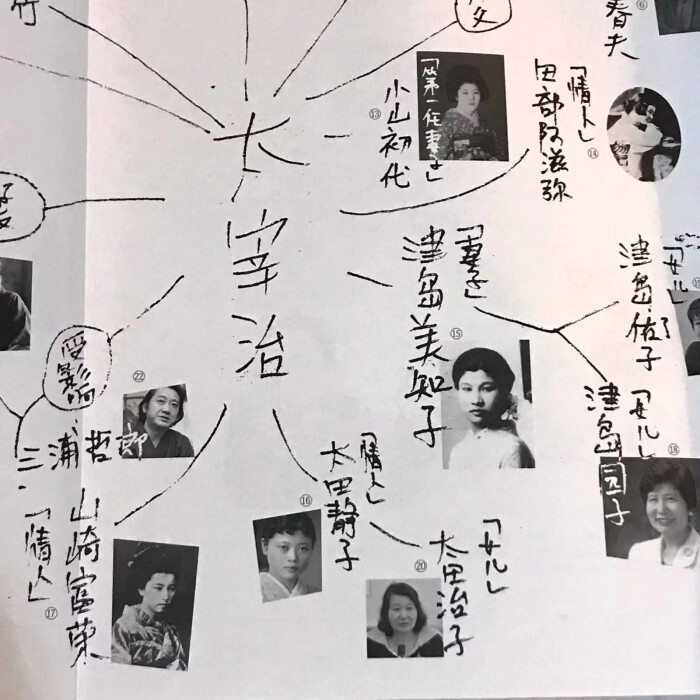 竹
友
春夫
⑥
太宰治
小山初代
「第一任妻子」
⑬
田部阿滋弥
「情人」
⑭
津島美知子
「妻子」
⑮
津島佑子
「女儿」
⑲
津島园子
「女儿」
⑱
受影响
㉒
三浦哲郎
山崎富荣
「情人」
⑰
太田静子
「情人」
⑯
太田治子
「女儿」
⑳